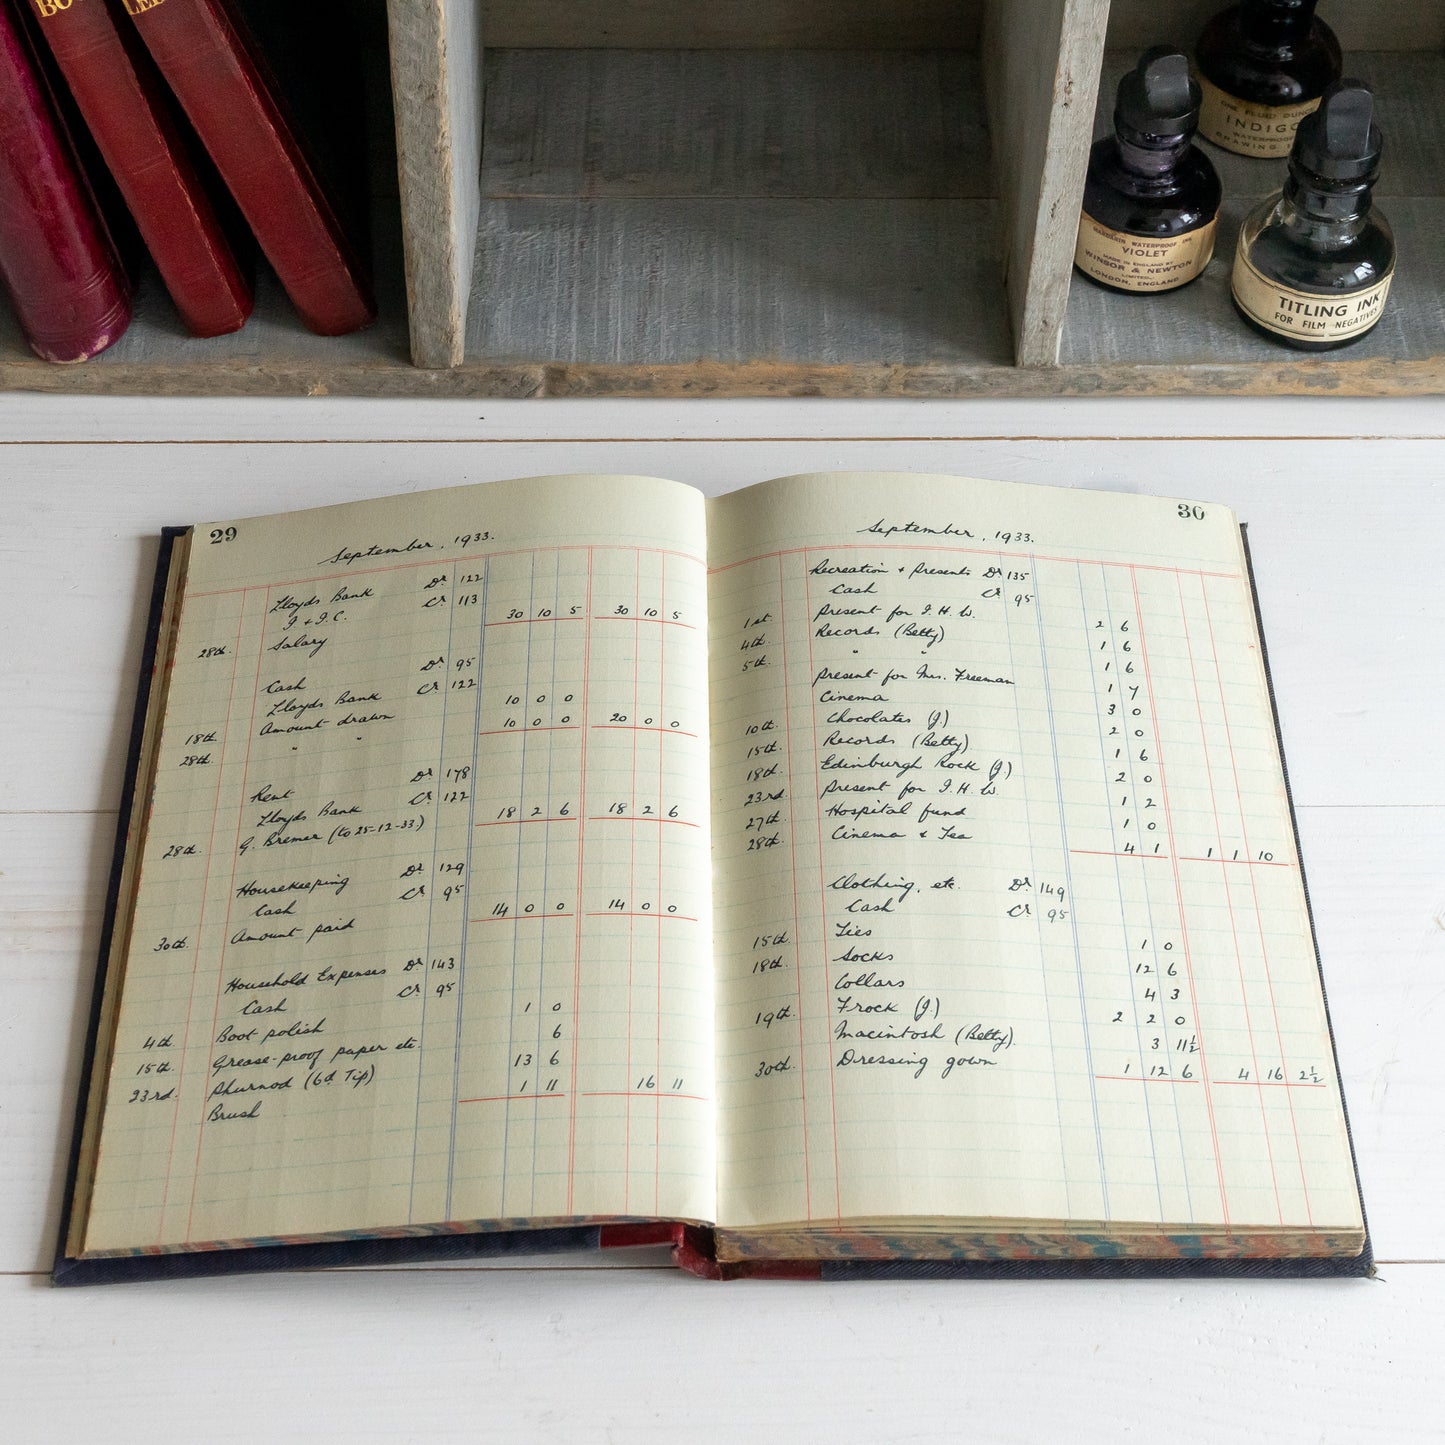 INDIGO
DRAWING
WATERPROOF
VIOLET
MADE IN ENGLAND BY
WINSOR & NEWTON
LIMITED.
LONDON, ENGLAND
TITLING INK
FOR FILM NEGATIVES
29
September, 1933.
Dr 122
Lloyds Bank Cr 113
I. & I.C. 30 10 5 30 10 5
28th. Salary
Dr 95
Cash Cr 122
Lloyds Bank 10 0 0
18th. Amount drawn 10 0 0 20 0 0
28th. " "
Dr 178
Rent Cr 122
Lloyds Bank 18 2 6 18 2 6
28th. G. Bremer (to 25-12-33.)
Dr 129
Housekeeping Cr 95
Cash 14 0 0 14 0 0
30th. Amount paid
Household Expenses Dr 143
Cash Cr 95
4th. Boot polish 1 0
15th. Grease-proof paper etc. 6
23rd. (6d Tip) 13 6
Brush 1 11 16 11
30
September, 1933.
Recreation & Presents Dr 135
Cash Cr 95
1st. Present for I. H. W. 2 6
4th. Records (Betty) 1 6
5th. " " 1 6
Present for Mrs. Freeman 1 7
Cinema 3 0
10th. Chocolates (J.) 2 0
15th. Records (Betty) 1 6
18th. Edinburgh Rock (J.) 2 0
23rd. Present for I. H. W. 1 2
27th. Hospital fund 1 0
28th. Cinema & Tea 4 1 1 1 10
Clothing, etc. Dr 149
Cash Cr 95
15th. Ties 1 0
18th. Socks 12 6
Collars 4 3
19th. Frock (J.) 2 2 0
Macintosh (Betty). 3 11½
30th. Dressing gown 1 12 6 4 16 2½